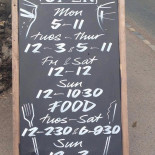 OPEN
Mon
5-11
Tues-Thur
12-3 & 5-11
Fri & Sat
12-12
Sun
12-1030
FOOD
Tues-Sat
12-230 & 6-930
Sun